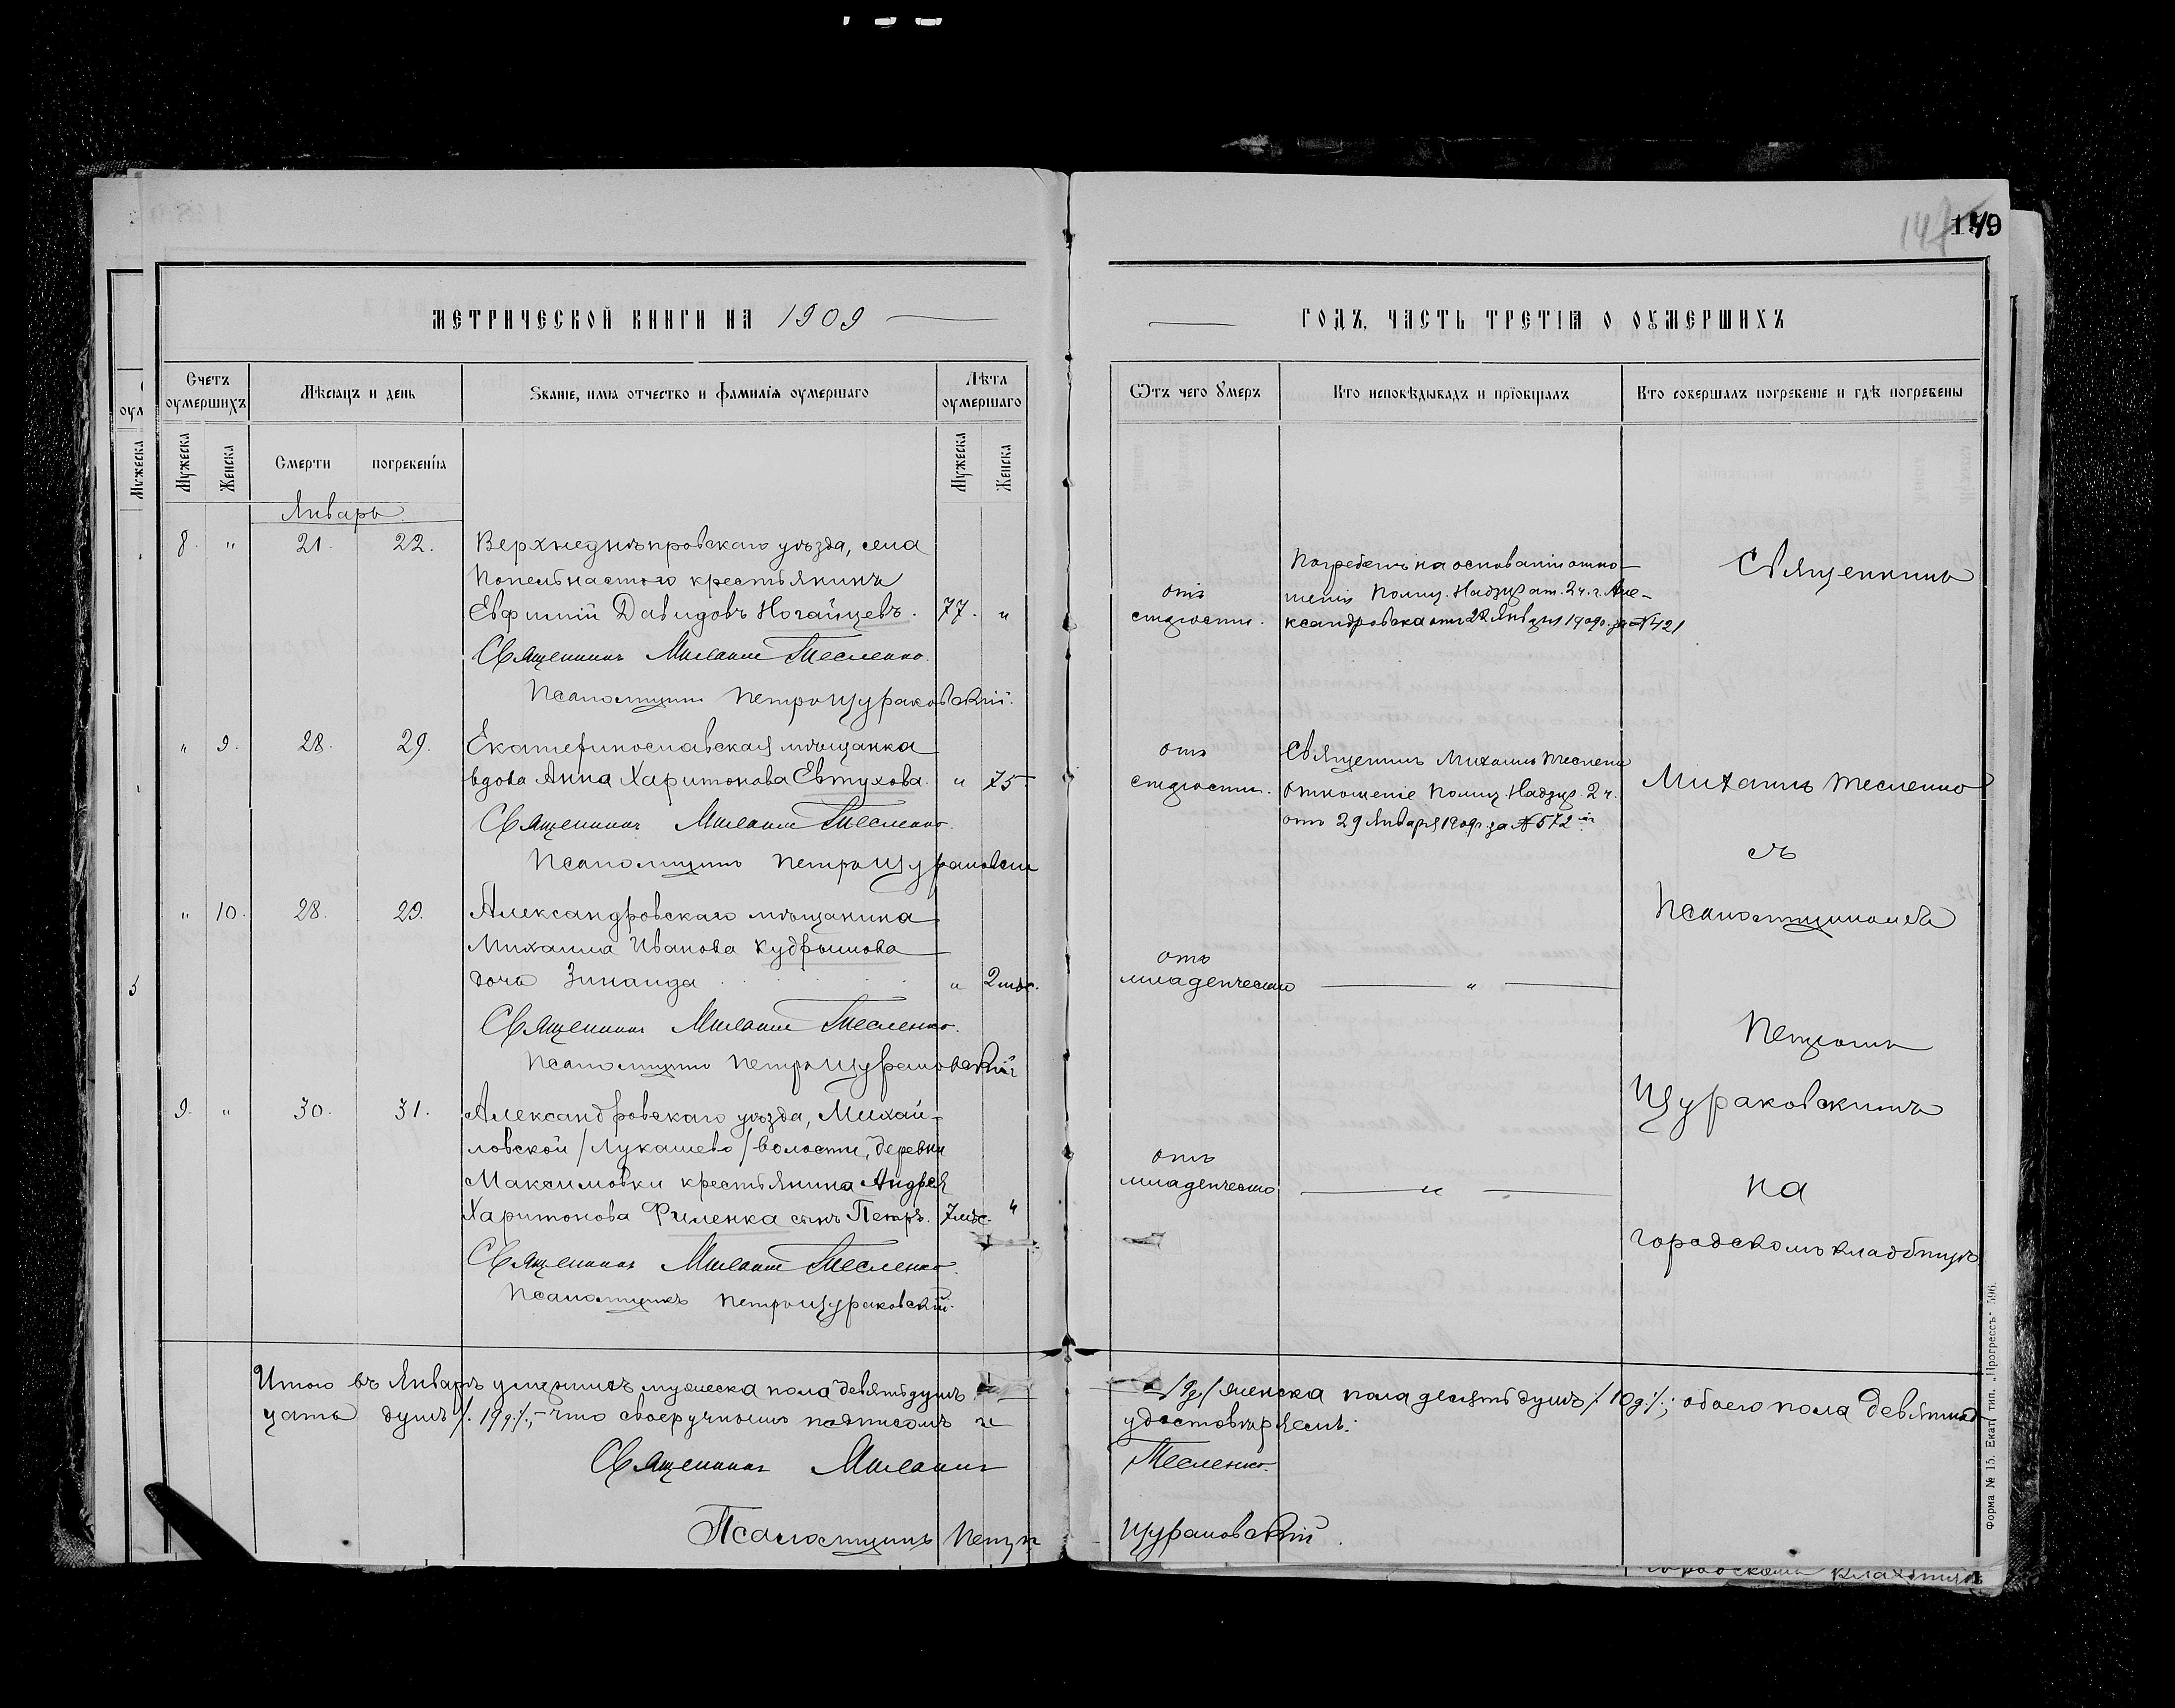 149
МЕТРИЧЕСКОЙ КНИГИ НА 1909
ГОДЪ, ЧАСТЬ ТРЕТІЯ О ОУМЕРШИХЪ
Счетъ оумершихъ
Мѣсяцъ и день
Званіе, имя отчество и фамилія оумершаго
Лѣта оумершаго
Отъ чего Умеръ
Кто исповѣдывалъ и пріобщалъ
Кто совершалъ погребеніе и гдѣ погребены
Мужеска
Женска
Смерти
погребенія
Мужеска
Женска
Январь
8. " 21. 22. Верхнеднѣпровскаго уѣзда, села
Попельнастого крестьянинъ
Евфимій Давидовъ Ногайцевъ. 77. "
отъ
старости.
Погребенъ на основаніи отно-
шенія Полиц. Надзират. 2 ч. г. Але-
ксандровска отъ 22 Января 1909 г. за № 421
Священникъ Михаилъ Тесленко.
Псаломщикъ Петръ Щураковскій.
" 9. 28. 29. Екатеринославская мѣщанка
вдова Анна Харитонова Евтухова. " 75
отъ
старости.
Священникъ Михаилъ Тесленко
отношеніе Полиц. Надзир. 2 ч.
отъ 29 Января 1909 г. за № 572
Священникъ Михаилъ Тесленко.
Псаломщикъ Петръ Щураковскій
" 10. 28. 29. Александровскаго мѣщанина
Михаила Иванова Кудрышова
дочь Зинаида " 2 мѣс.
отъ
младенческой
"
Священникъ Михаилъ Тесленко.
Псаломщикъ Петръ Щураковскій
9. " 30. 31. Александровскаго уѣзда, Михай-
ловской /Лукашево/ волости, деревни
Максимовки крестьянина Андрея
Харитонова Филенка сынъ Петръ. 7 мѣс. "
отъ
младенческой
"
Священникъ Михаилъ Тесленко.
Псаломщикъ Петръ Щураковскій.
Священникъ
Михаилъ Тесленко
съ
Псаломщикомъ
Петромъ
Щураковскимъ
на
городскомъ кладбищѣ
Итого въ Январѣ умершихъ мужеска пола девять душъ /9 д/ женска пола десять душъ /. 10 д./.; обоего пола девятнад-
цать душъ /. 19 д./.,- что своеручнымъ подписомъ и удостовѣряемъ:
Священникъ Михаилъ Тесленко.
Псаломщикъ Петръ Щураковскій.
Форма № 15. Екат. тип. „Прогрессъ“ 596.